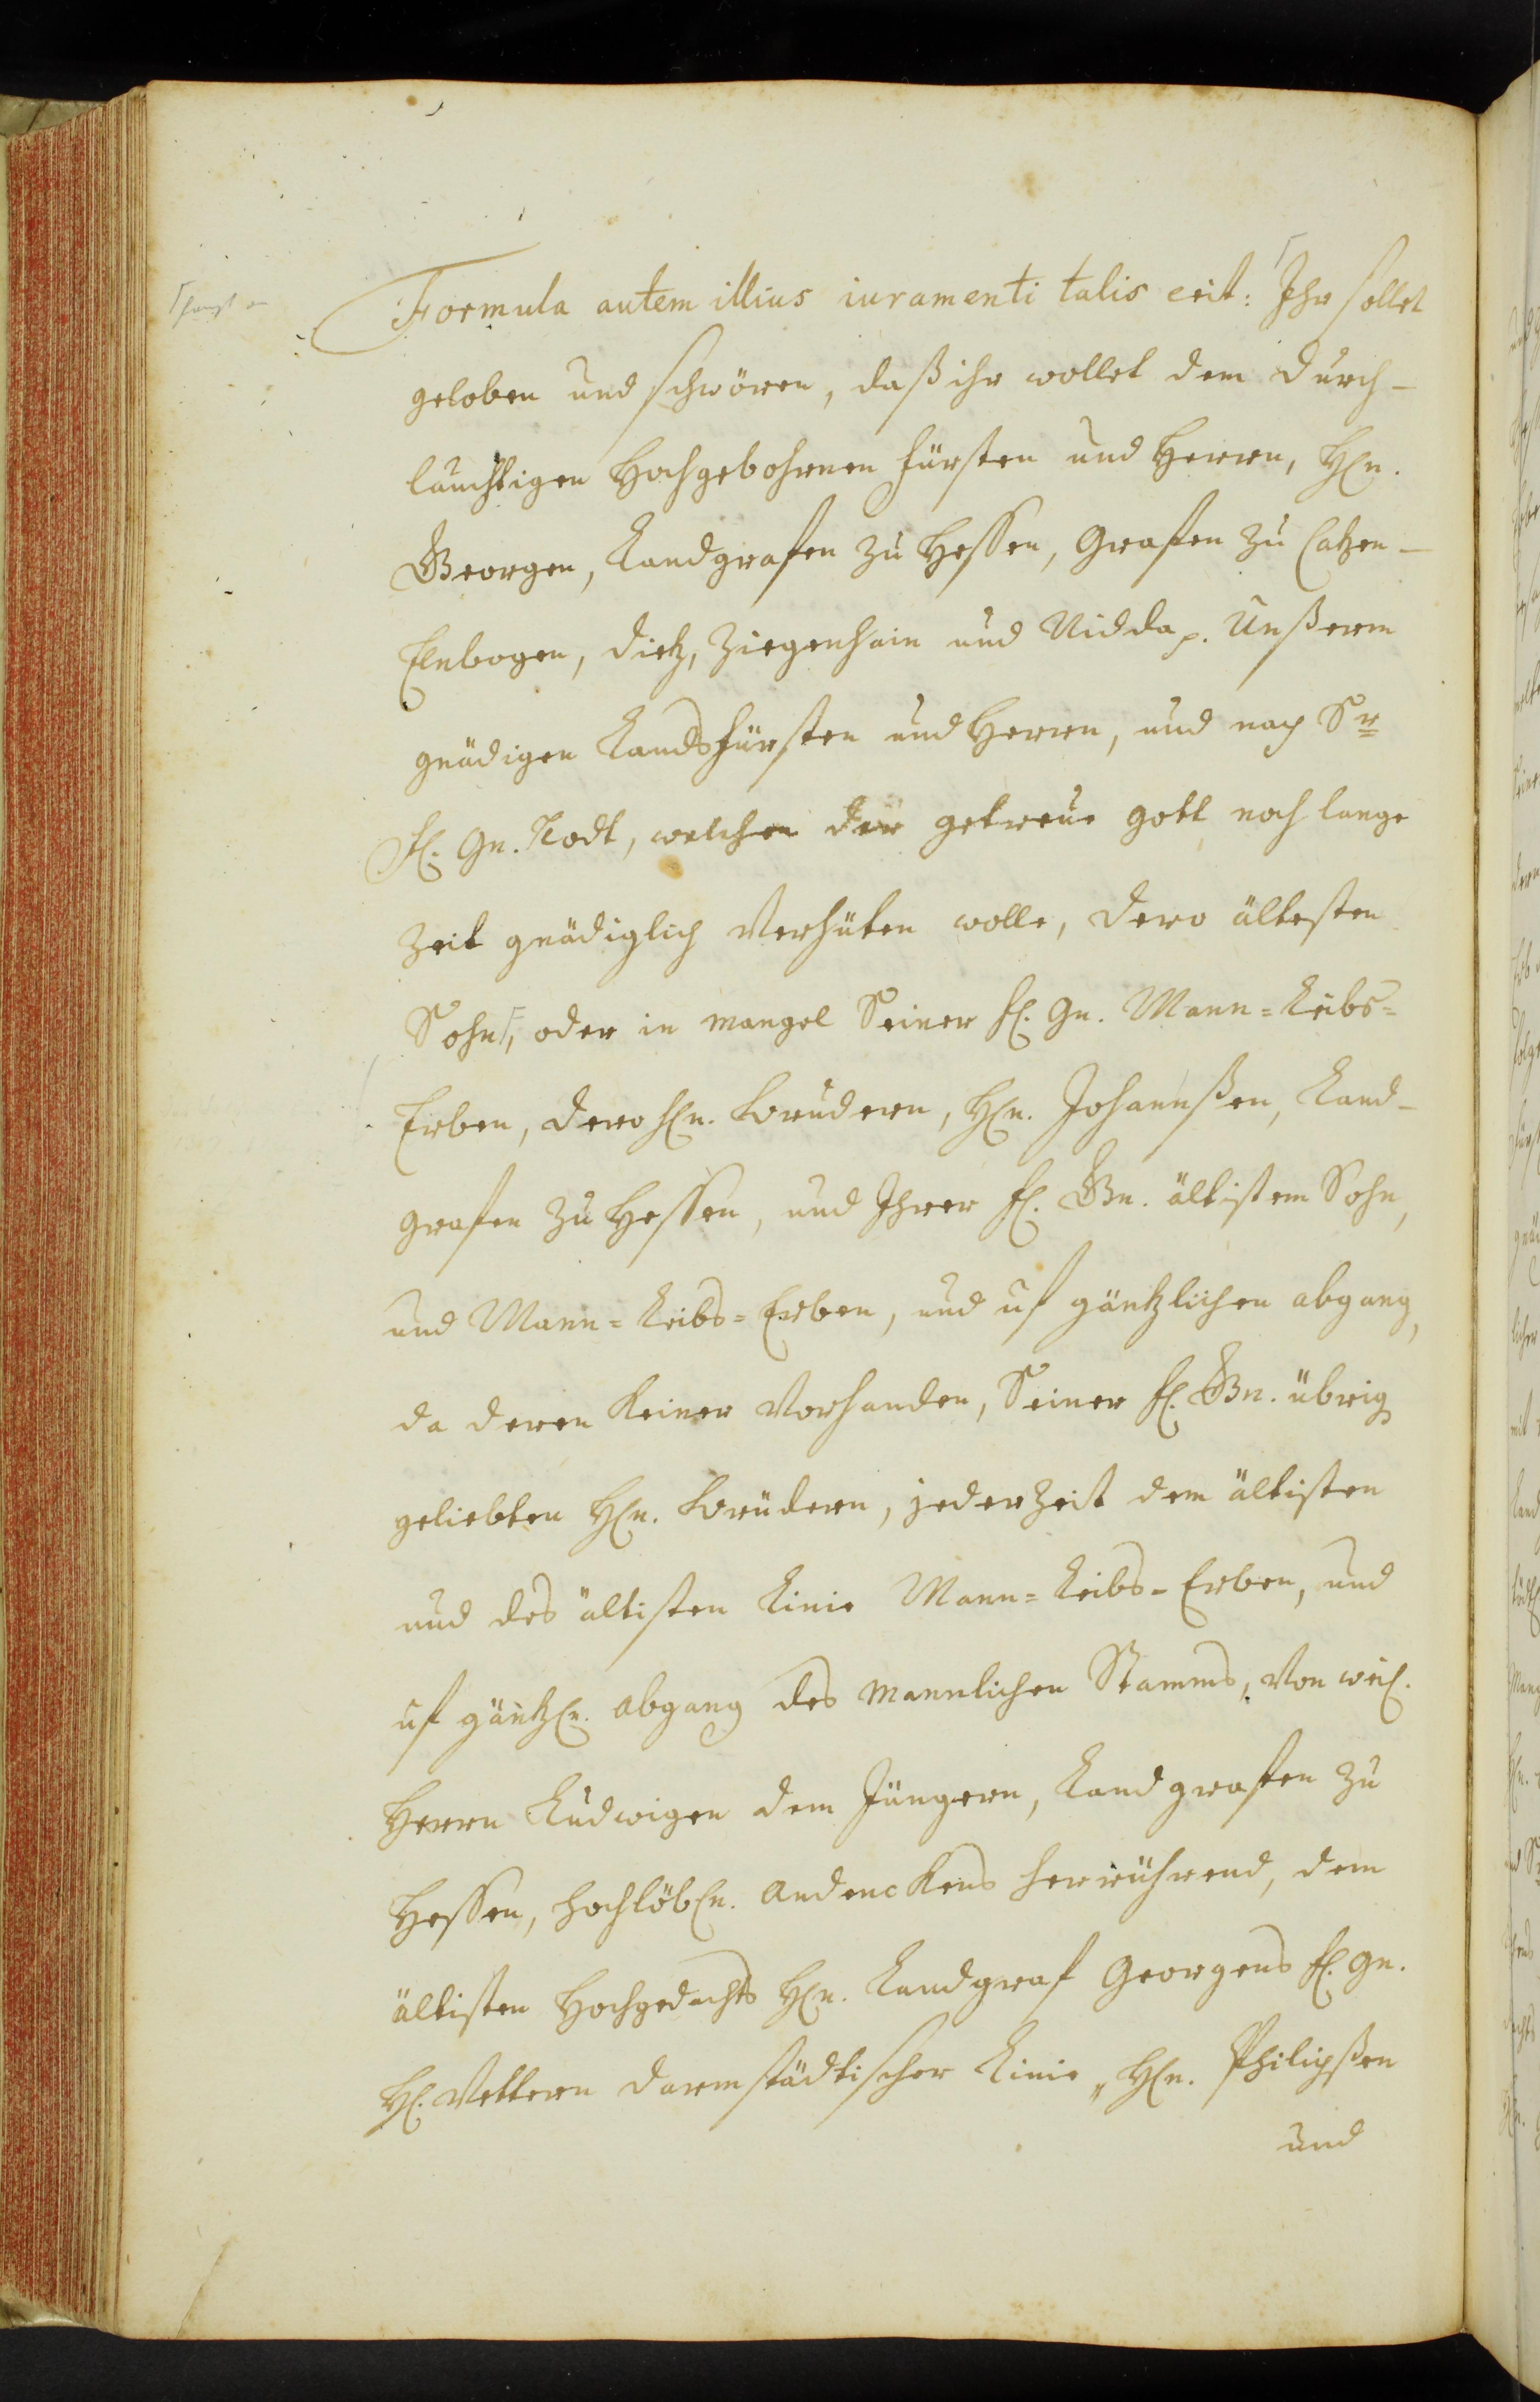 Formula autem illius iuramenti talis erit: Ihr sollet
geloben und schwören, daß ihr wollet dem Durch-
lauchtigen Hochgebohrnen Fürsten und Herren, Hn.
Georgen, Landgrafen zu Hessen, Grafen zu Catzen-
Elnbogen, Dietz, Ziegenhain und Nidda p. Unßerm
gnädigen Landsfürsten und Herren, und nach Sr
fl. Gn. Todt, welchen der getreue gott noch lange
Zeit gnädiglich Verhüten wolle, dero ältesten
Sohn, oder in mangel Seiner fl. Gn. Mann=Leibs=
Erben, dero Hn. Brudern, Hn. Johannßen, Land-
grafen zu Hessen, und Ihrer fl. Gn. ältistem Sohn,
und Mann=Leibs=Erben, und uf gäntzlichen abgang,
da deren Keiner Vorhanden, Seiner fl. Gn. übrig
geliebten Hn. Brüdern, jederzeit dem ältisten
und des ältisten Linie Mann=Leibs=Erben, und
uf gäntzln. abgang des Mannlichen Stamms, Von weil.
Herrn Ludwigen dem Jüngern, Landgrafen zu
Hessen, hochlöbln. Andenckens herrührend, dem
ältisten Hochgedachts Hn. Landgraf Georgens fl. gn.
Hl. Vettern Darmstädtischer Linie, Hn. Philipßen
und